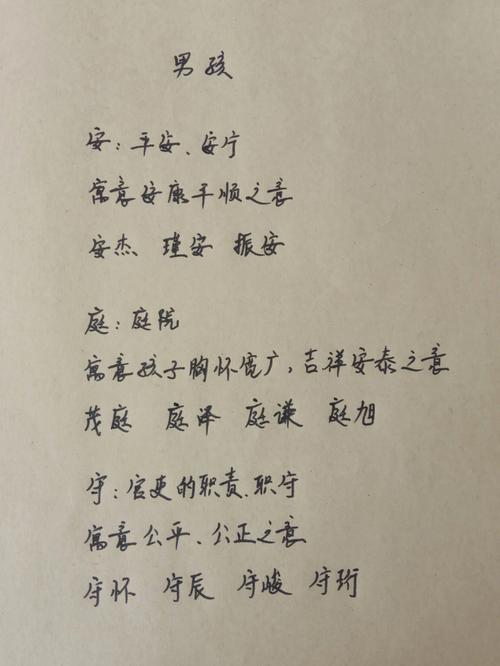 男孩
安：平安、安宁
寓意安康平顺之意
安杰 瑾安 振安
庭：庭院
寓意孩子胸怀宽广，吉祥安泰之意
茂庭 庭泽 庭谦 庭旭
守：官吏的职责、职守
寓意公平、公正之意
守怀 守辰 守峻 守珩